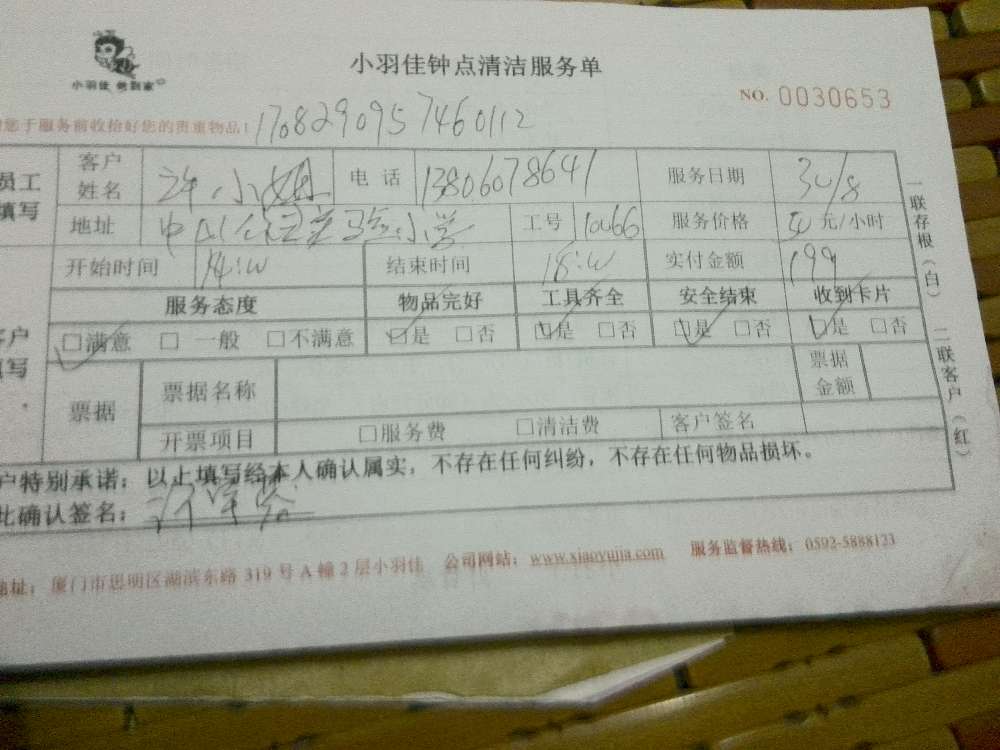 小羽佳 帮到家
小羽佳钟点清洁服务单
NO. 0030653
您于服务前收拾好您的贵重物品! 1708290957460112
员工填写 客户姓名 许小姐 电话 13806078641 服务日期 30/8
地址 中山公园 实验小学 工号 10066 服务价格 元/小时
开始时间 14:00 结束时间 18:00 实付金额 199
服务态度 物品完好 工具齐全 安全结束 收到卡片
客户填写 ☑满意 □一般 □不满意 ☑是 □否 ☑是 □否 ☑是 □否 ☑是 □否
票据 票据名称 票据金额
开票项目 □服务费 □清洁费 客户签名
户特别承诺:以上填写经本人确认属实,不存在任何纠纷,不存在任何物品损坏。
此确认签名:
一联存根(白) 二联客户(红)
地址: 厦门市思明区湖滨东路 319 号 A 幢 2 层小羽佳 公司网站: www.xiaoyujia.com 服务监督热线: 0592-5888123